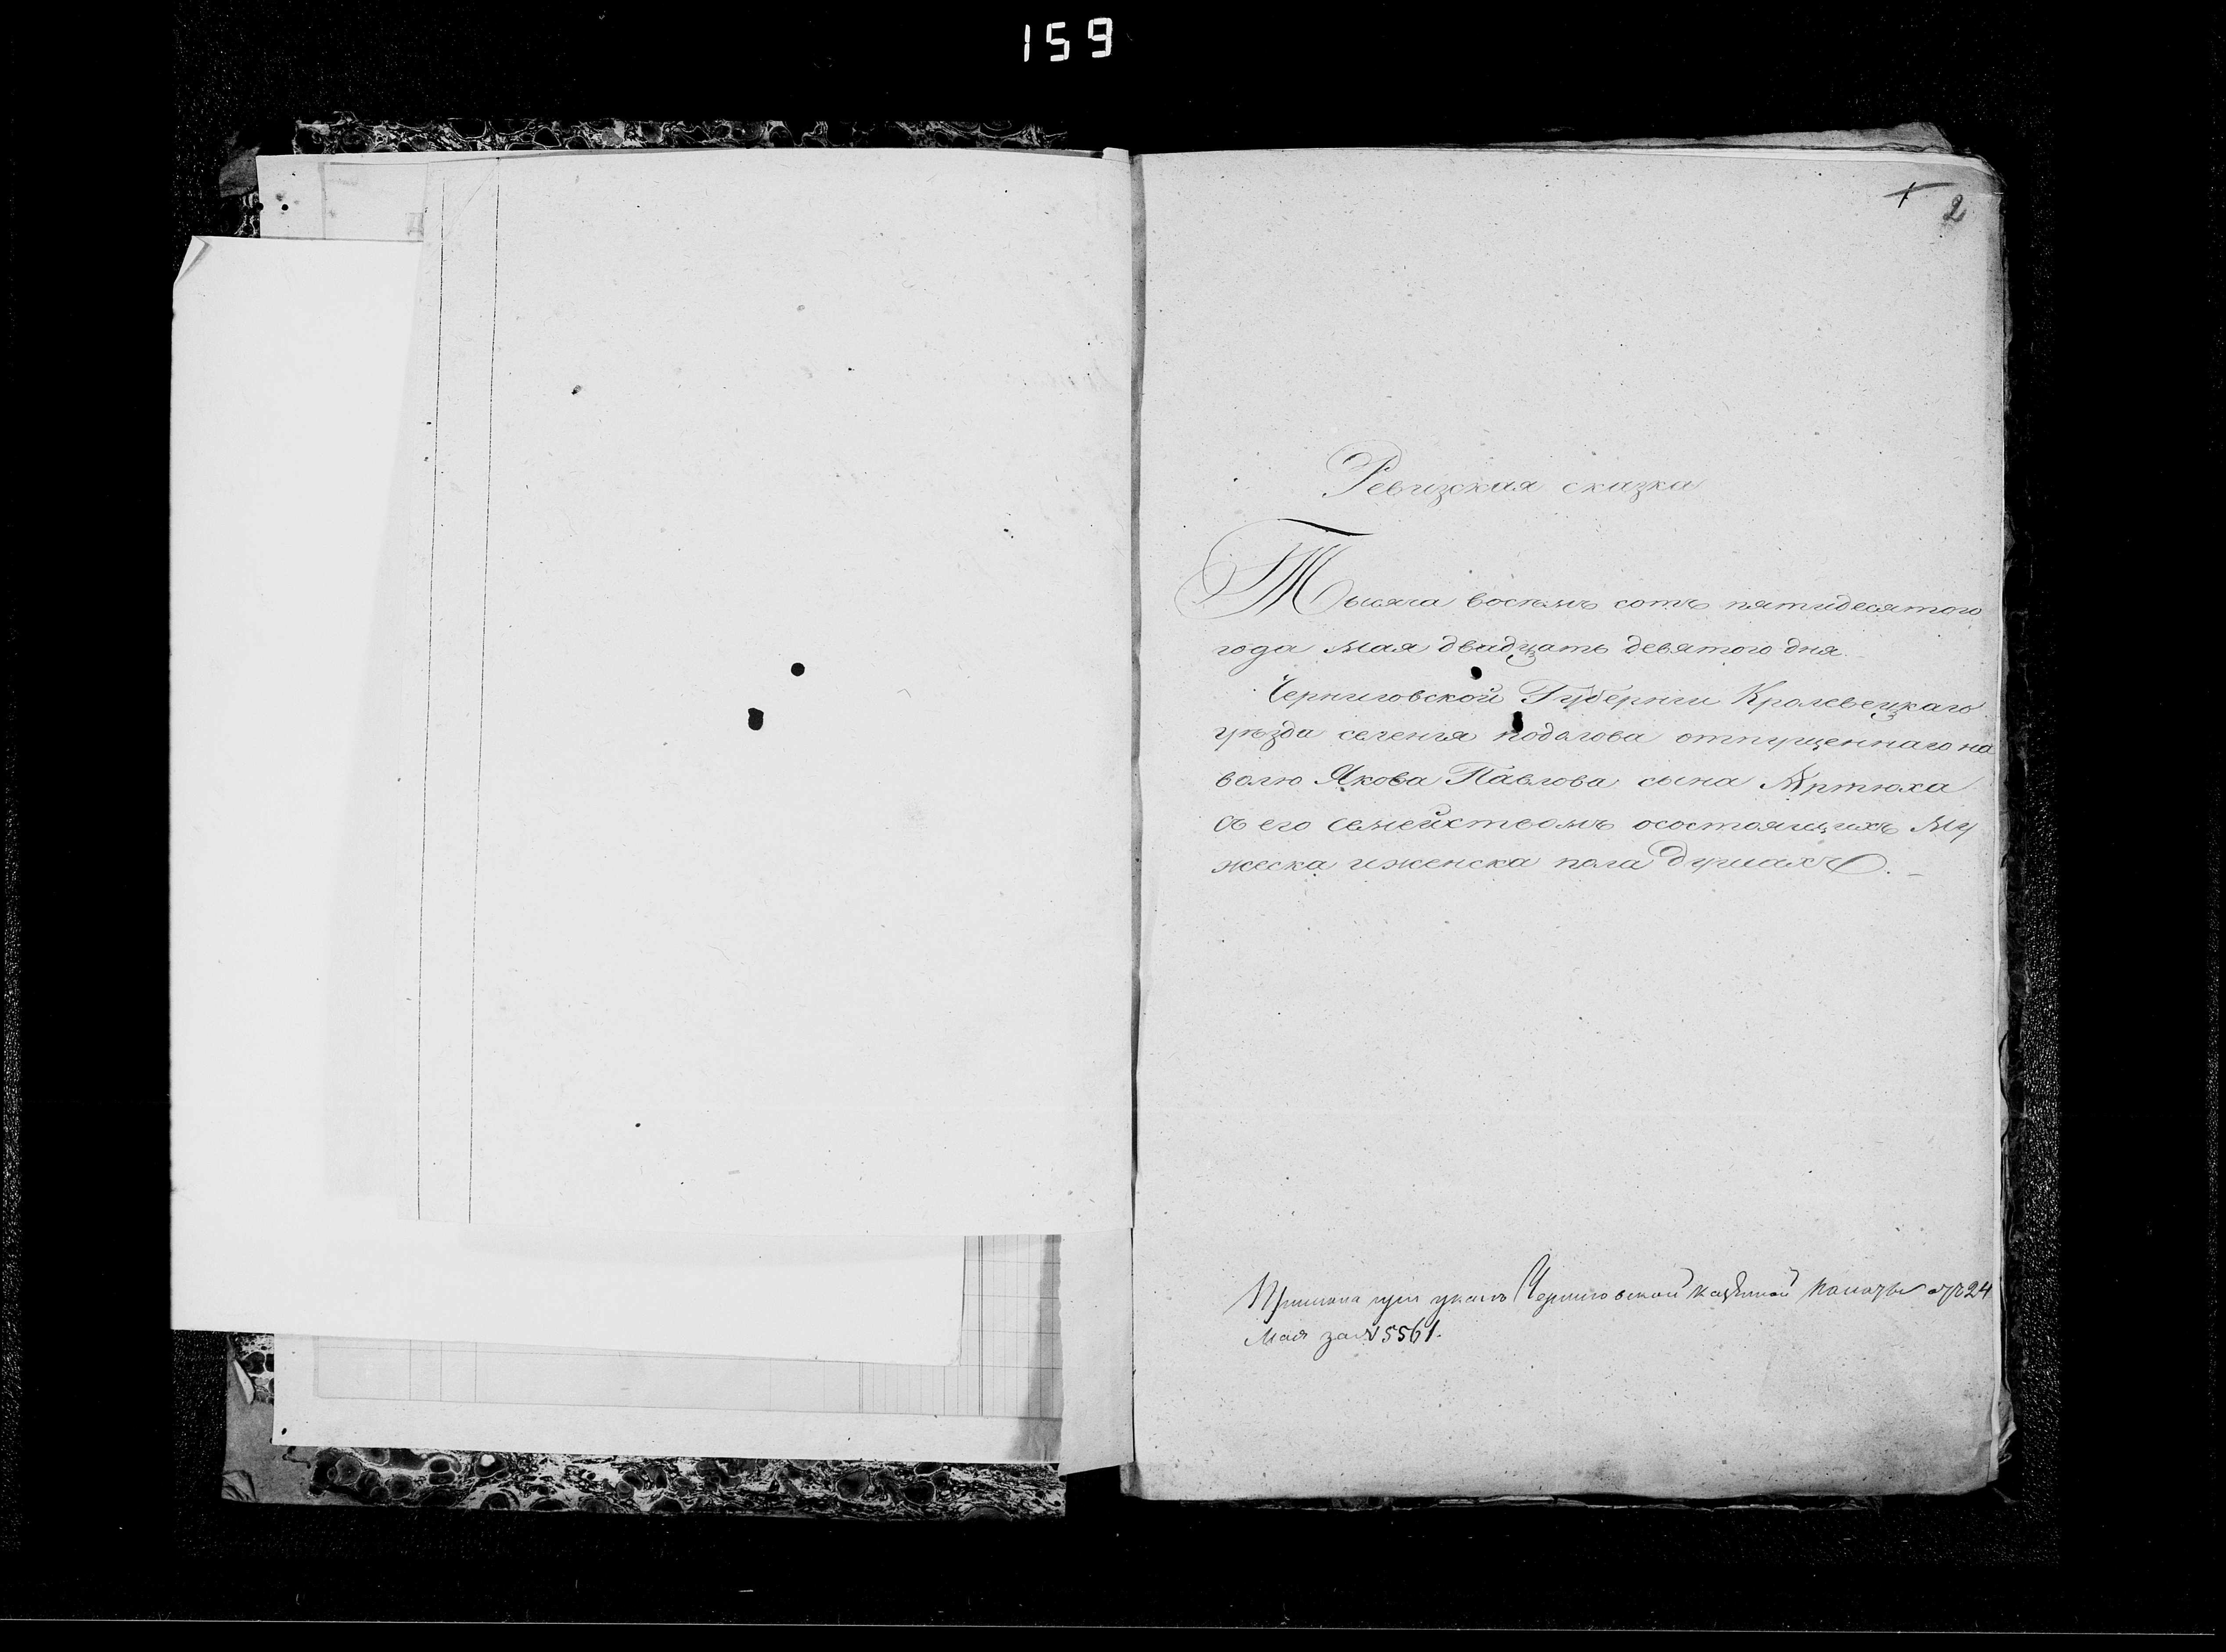 159
2
Ревизская сказка
Тысяча восемь сотъ пятидесятого
года мая двадцать девятого дня.
Черниговской Губернии Кролевецкаго
уезда селения подолова отпущеннаго на
волю Якова Павлова сына Артюха
съ его семействомъ осостоящихъ му
жеска и женска пола душахъ.
при указе Черниговской казенной палаты отъ 24
Мая за № 5561.